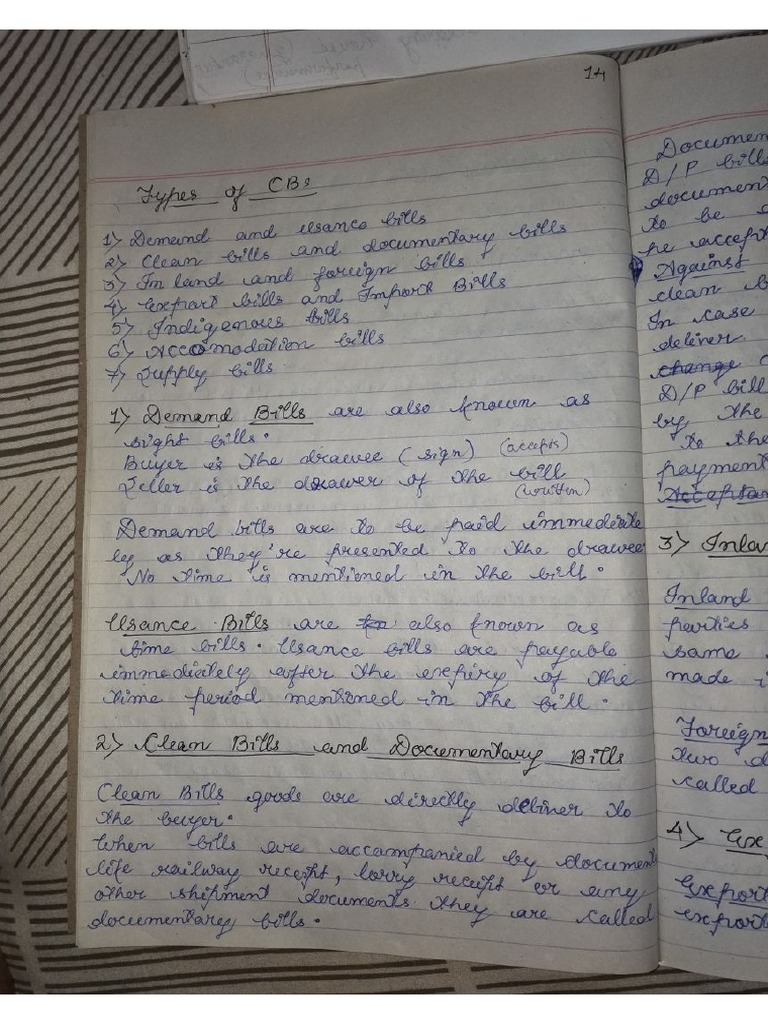 14
Types of CBs
1) Demand and usance bills
2) Clean bills and documentary bills
3) Inland and foreign bills
4) Export bills and Import Bills
5) Indigenous bills
6) Accomodation bills
7) Supply bills
1) Demand Bills are also known as
sight bills.
Buyer is the drawee (sign) (accepts)
Seller is the drawer of the bill
(written)
Demand bills are to be paid immediate
ly as they're presented to the drawee
No time is mentioned in the bill.
Usance Bills are also known as
time bills. Usance bills are payable
immediately after the expiry of the
time period mentioned in the bill.
2) Clean Bills and Documentary Bills
Clean Bills goods are directly deliver to
the buyer.
When bills are accompanied by document
like railway receipt, lorry receipt or any
other shipment documents they are called
documentary bills.
Documen
D/P bills
document
to be
he accept
Against
clean b
In case
deliver
change
D/P bill
by the
to the
payment
Acceptan
3) Inla
Inland
parties
same
made i
Foreign
two d
called
4) Ex
Export
export